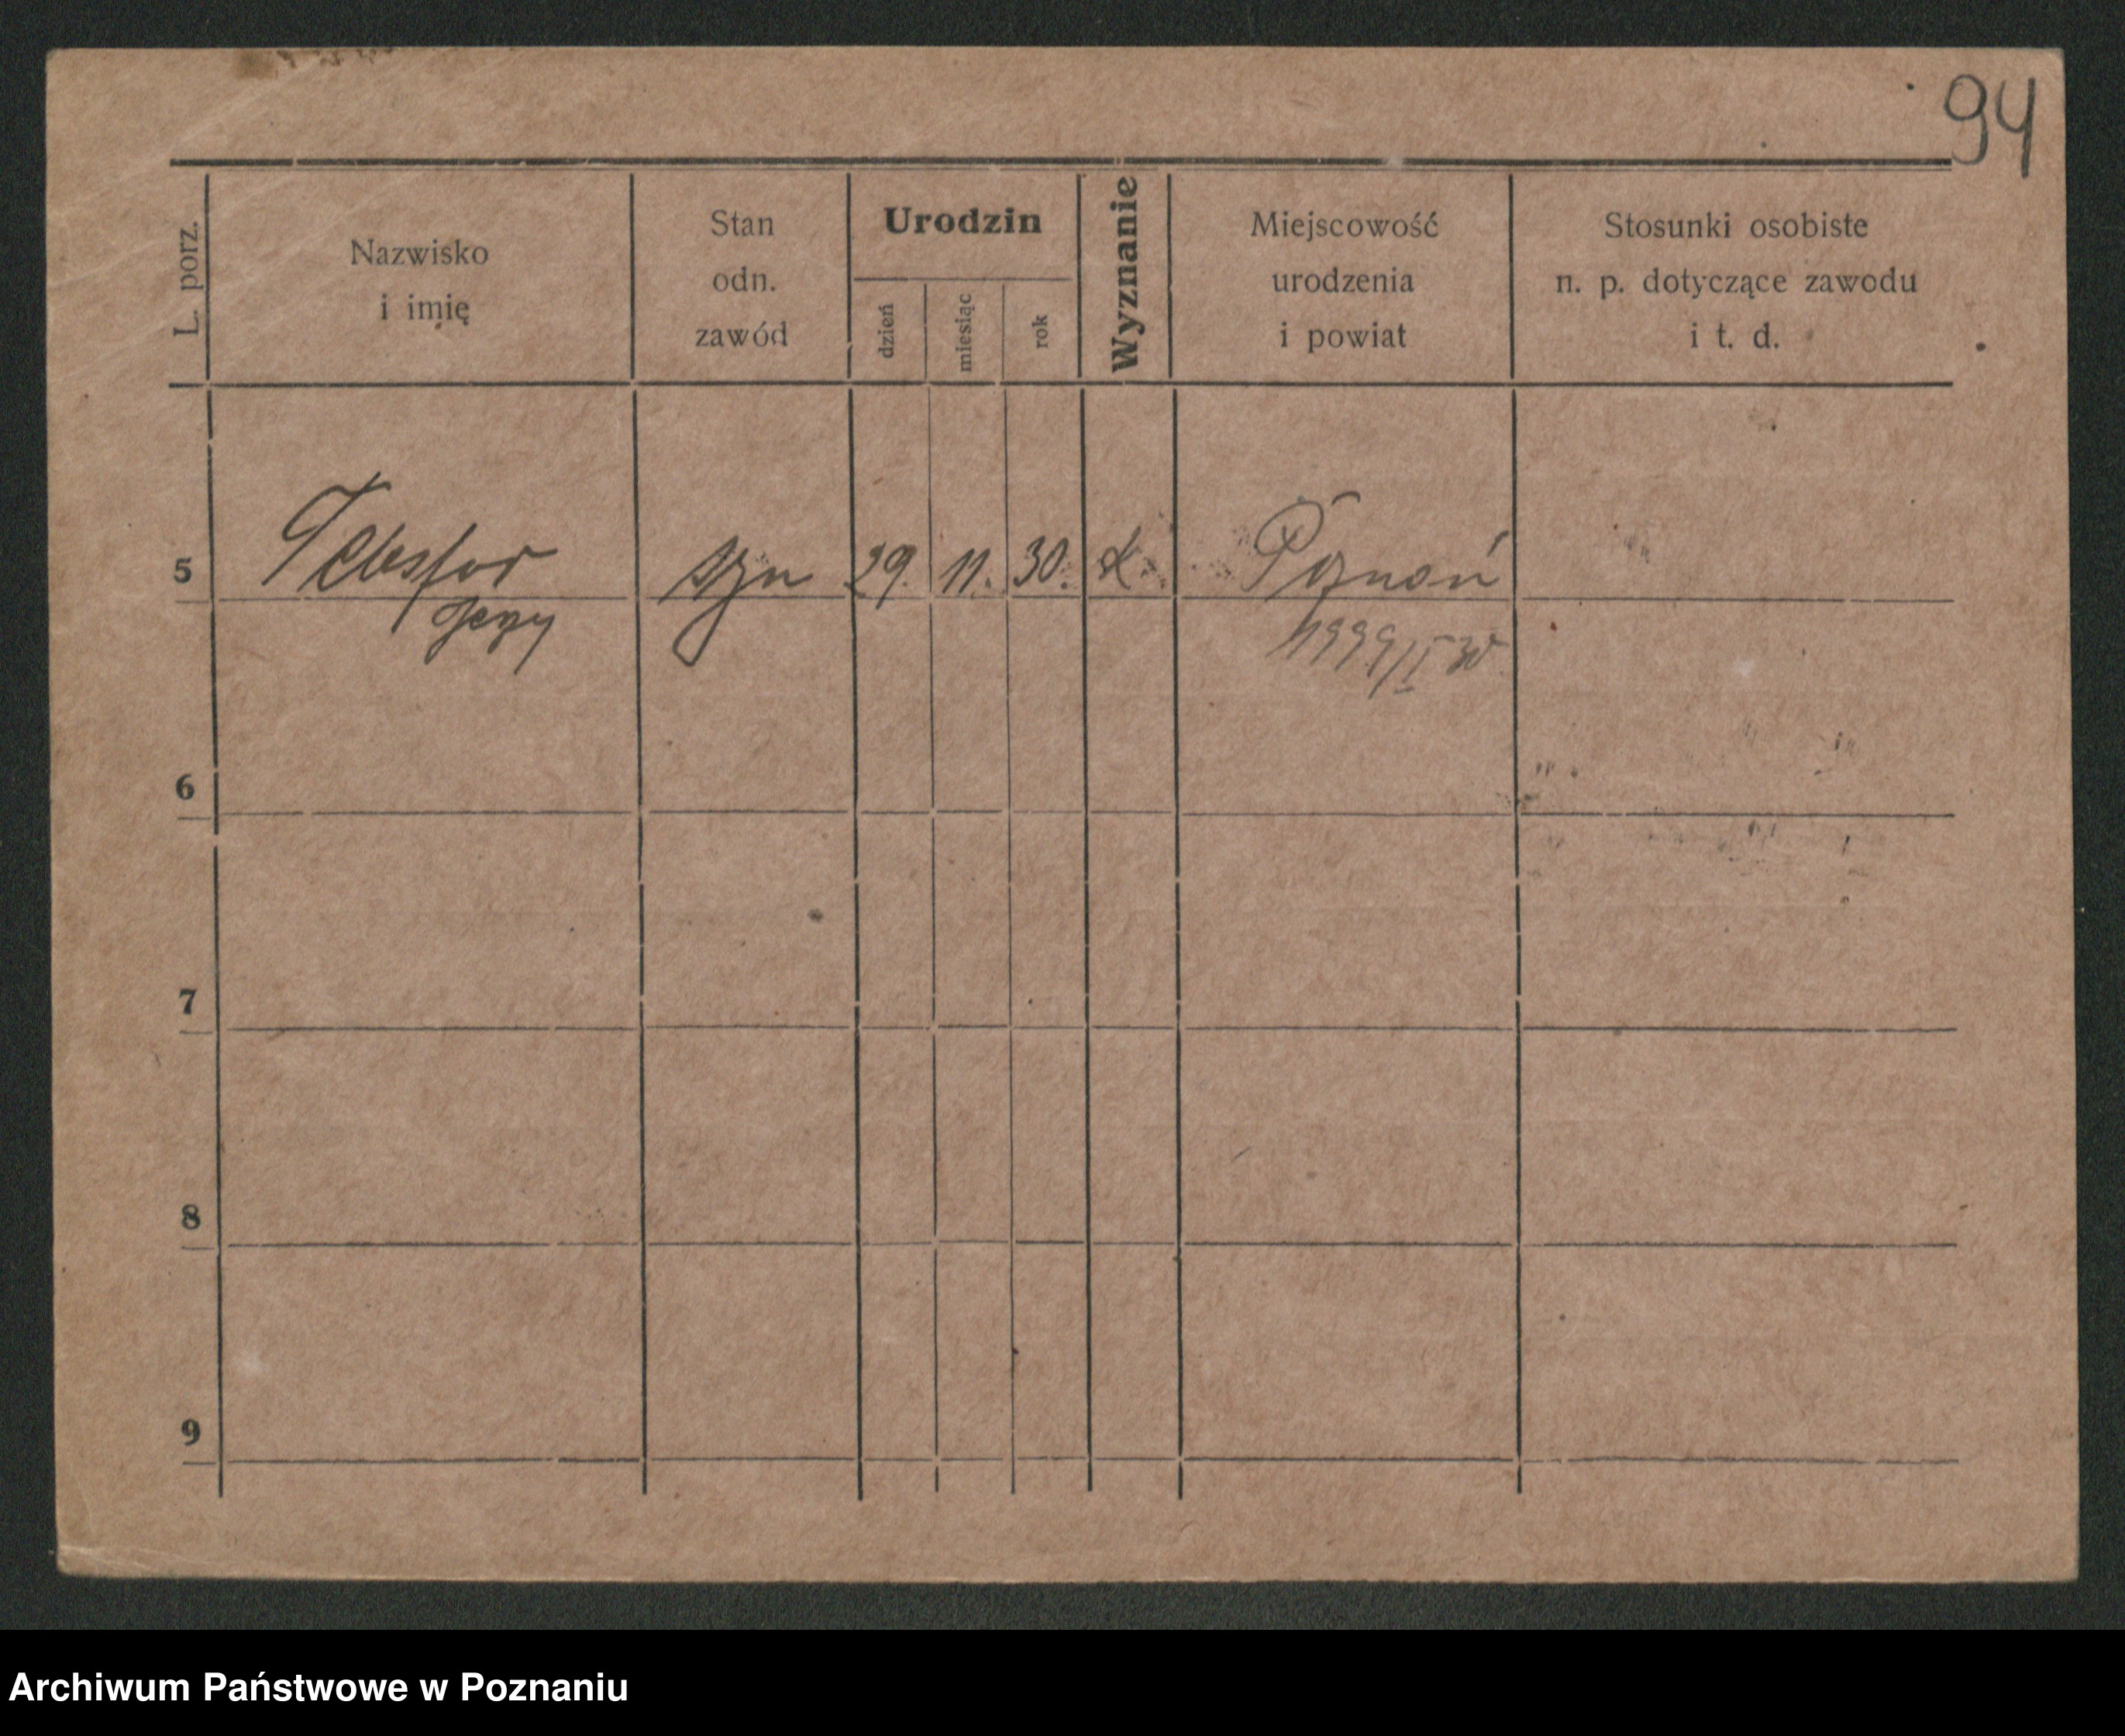 94
L. porz.
Nazwisko
i imię
Stan
odn.
zawód
Urodzin
dzień
miesiąc
rok
Wyznanie
Miejscowość
urodzenia
i powiat
Stosunki osobiste
n. p. dotyczące zawodu
i t. d.
5 syn 29. 11. 30. k. Poznań
Jerzy
6
7
8
9
Archiwum Państwowe w Poznaniu